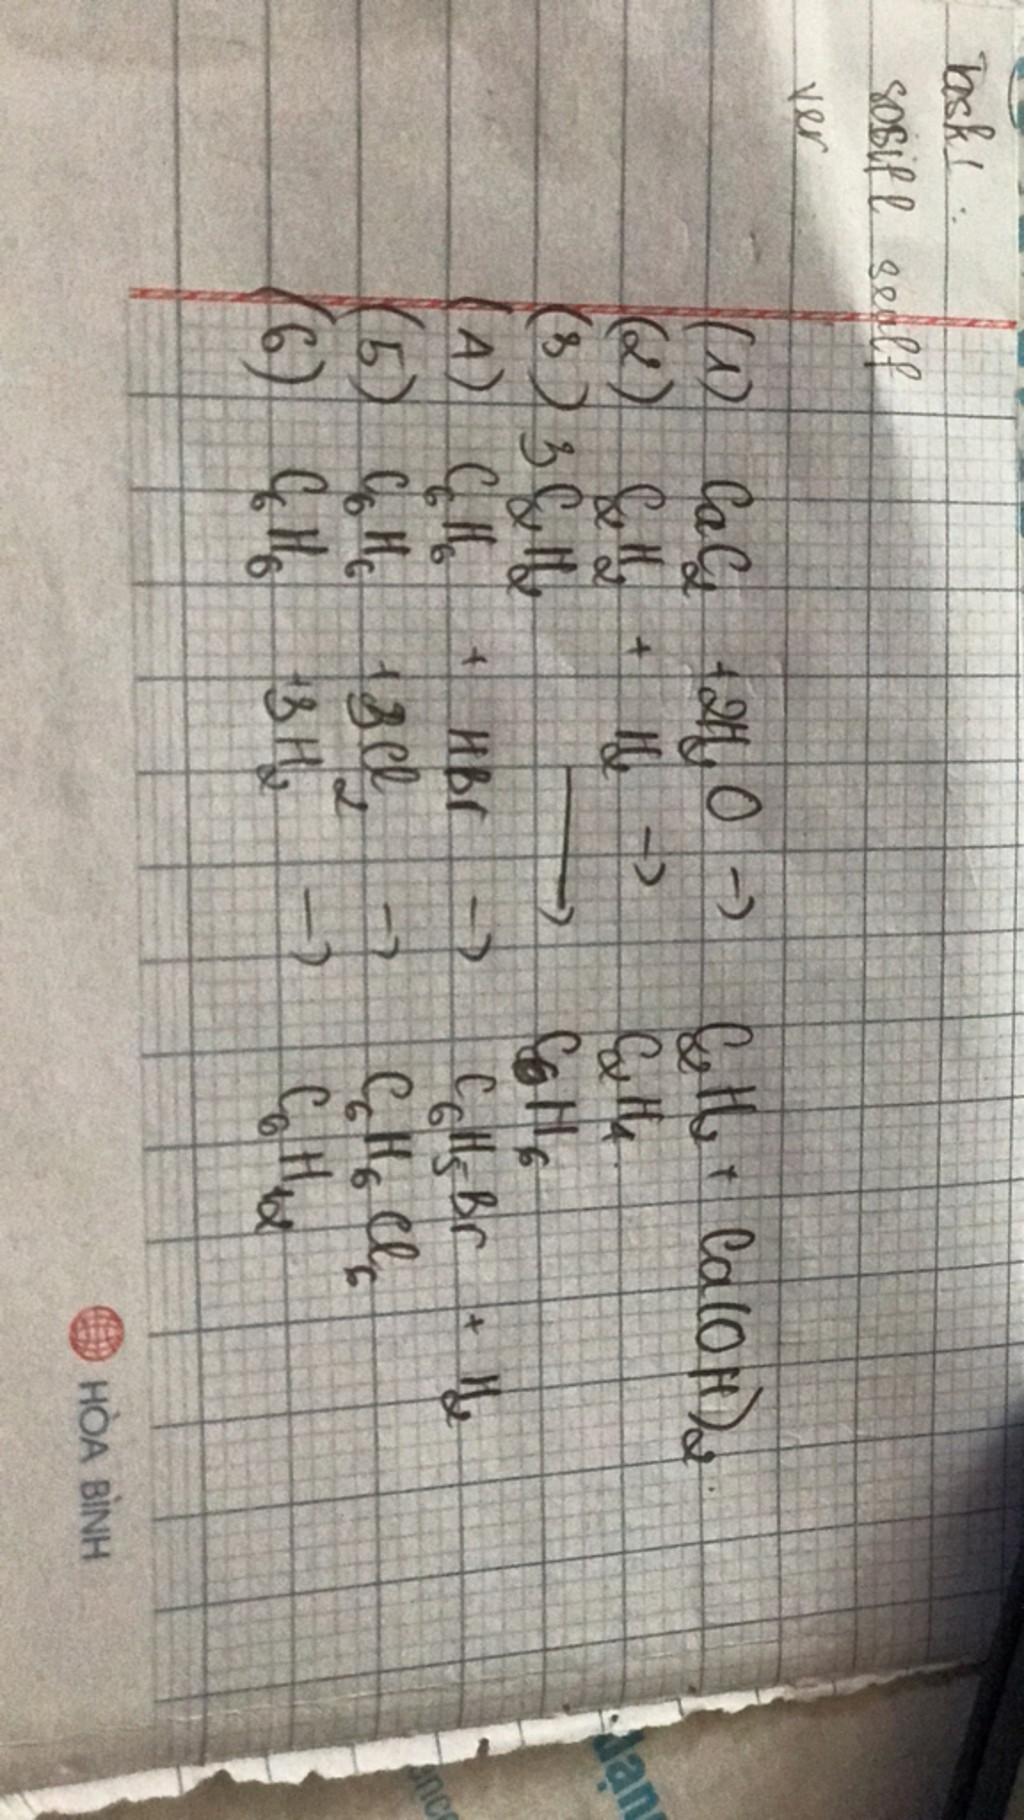 Task 1:
ver
(1) CaC₂ + 2H₂O → C₂H₂ + Ca(OH)₂.
(2) C₂H₂ + H₂ → C₂H₄.
(3) 3C₂H₂ → C₆H₆
(4) C₆H₆ + HBr → C₆H₅Br + H₂
(5) C₆H₆ + 3Cl₂ → C₆H₆Cl₆
(6) C₆H₆ + 3H₂ → C₆H₁₂
HÒA BÌNH